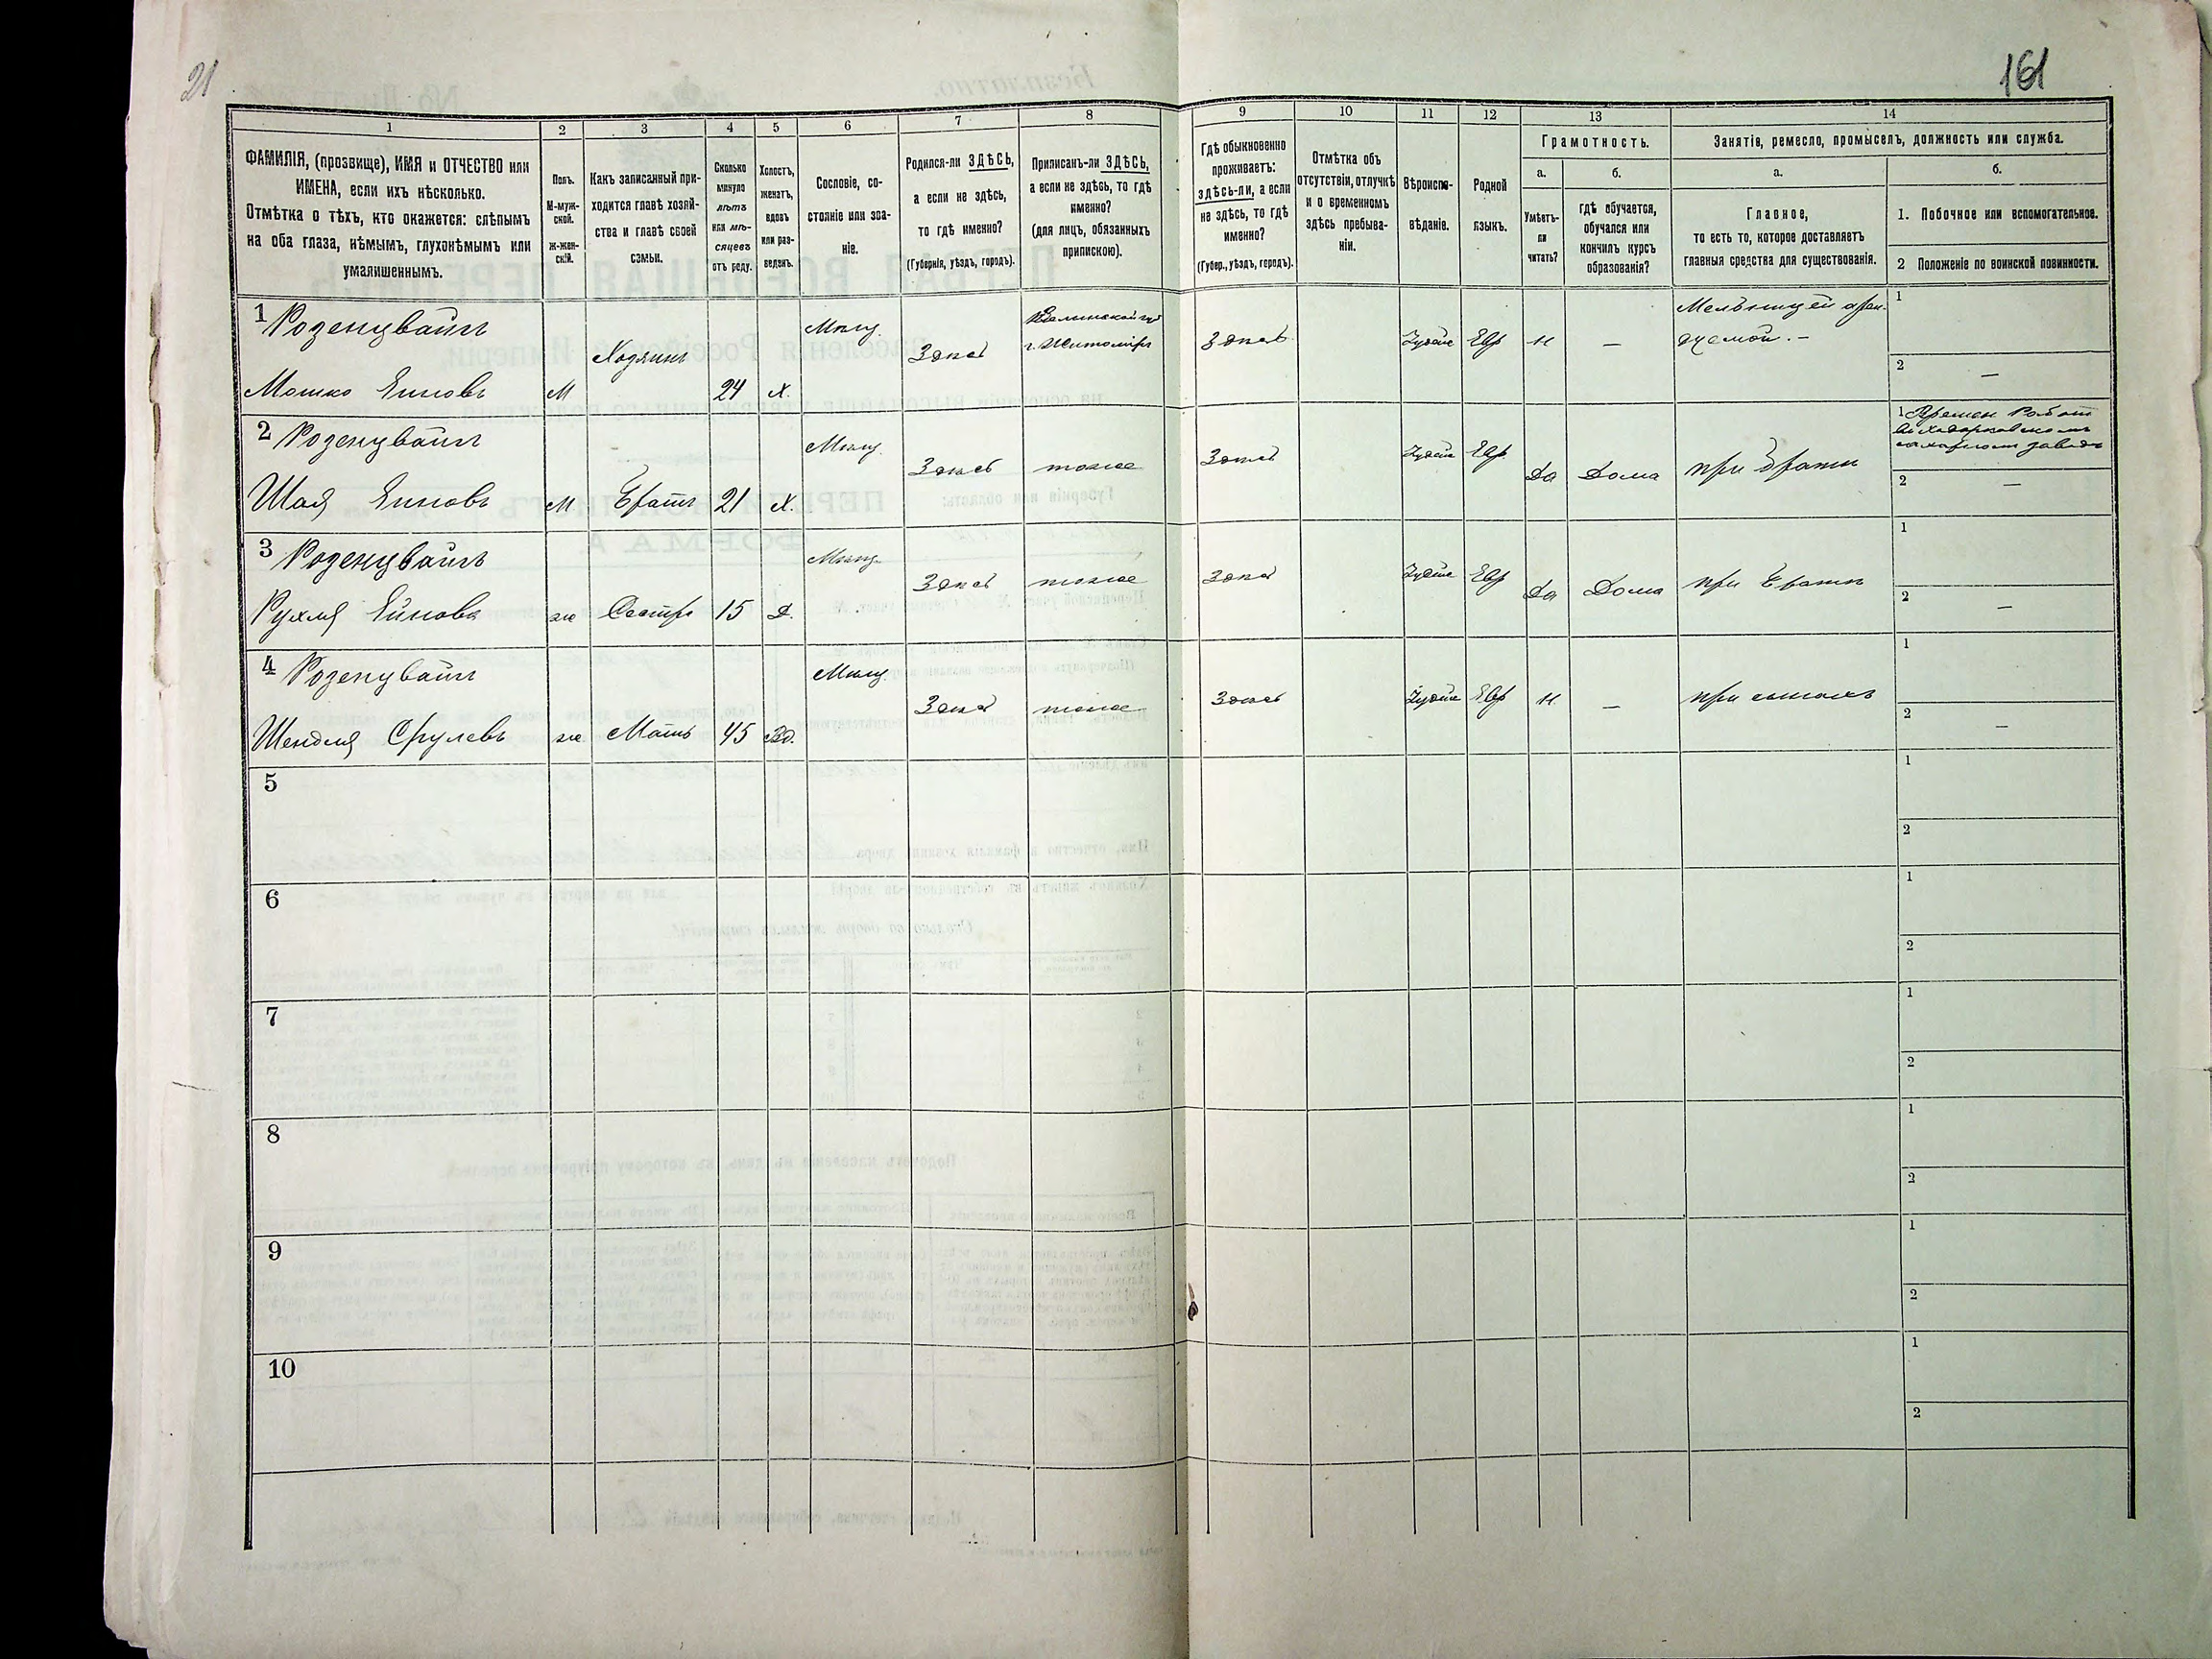 21
161
1
2
3
4
5
6
7
8
9
10
11
12
13
14
ФАМИЛІЯ, (прозвище), ИМЯ и ОТЧЕСТВО или
ИМЕНА, если ихъ нѣсколько.
Отмѣтка о тѣхъ, кто окажется: слѣпымъ
на оба глаза, нѣмымъ, глухонѣмымъ или
умалишеннымъ.
Полъ.
М-муж-
ской.
Ж-жен-
скій.
Какъ записанный при-
ходится главѣ хозяй-
ства и главѣ своей
семьи.
Сколько
минуло
лѣтъ
или мѣ-
сяцевъ
отъ роду.
Холостъ,
женатъ,
вдовъ
или раз-
веденъ.
Сословіе, со-
стояніе или зва-
ніе.
Родился-ли ЗДѢСЬ,
а если не здѣсь,
то гдѣ именно?
(Губернія, уѣздъ, городъ).
Приписанъ-ли ЗДѢСЬ,
а если не здѣсь, то гдѣ
именно?
(для лицъ, обязанныхъ
припискою).
Гдѣ обыкновенно
проживаетъ:
здѣсь-ли, а если
не здѣсь, то гдѣ
именно?
(Губер., уѣздъ, городъ).
Отмѣтка объ
отсутствіи, отлучкѣ
и о временномъ
здѣсь пребыва-
ніи.
Вѣроиспо-
вѣданіе.
Родной
языкъ.
Грамотность.
а.
б.
Умѣетъ-
ли
читать?
гдѣ обучается,
обучался или
кончилъ курсъ
образованія?
Занятіе, ремесло, промыселъ, должность или служба.
а.
б.
Главное,
то есть то, которое доставляетъ
главныя средства для существованія.
1. Побочное или вспомогательное.
2 Положеніе по воинской повинности.
1 Розенцвайгъ
Мошко
М
Хозяинъ
24
Х.
Мѣщ.
Здѣсь
г. Житоміръ
Здѣсь
Іудейс
Евр
н
—
Мельницей арен-
дуемой. —
1
2
—
2 Розенцвайгъ
Шая
М
Братъ
21
Х.
Мѣщ.
Здѣсь
тоже
Здѣсь
Іудейс
Евр
Да
Дома
при братѣ
1
2
—
3 Розенцвайгъ
Рухля
ж
Сестра
15
Д.
Мѣщ.
Здѣсь
тоже
Здѣсь
Іудейс
Евр
Да
Дома
при братѣ
1
2
—
4 Розенцвайгъ
Шендля Срулевъ
ж
Мать
45
Вд.
Мѣщ.
Здѣсь
тоже
Здѣсь
Іудейс
Евр
н
—
при сынахъ
1
2
—
5
1
2
6
1
2
7
1
2
8
1
2
9
1
2
10
1
2